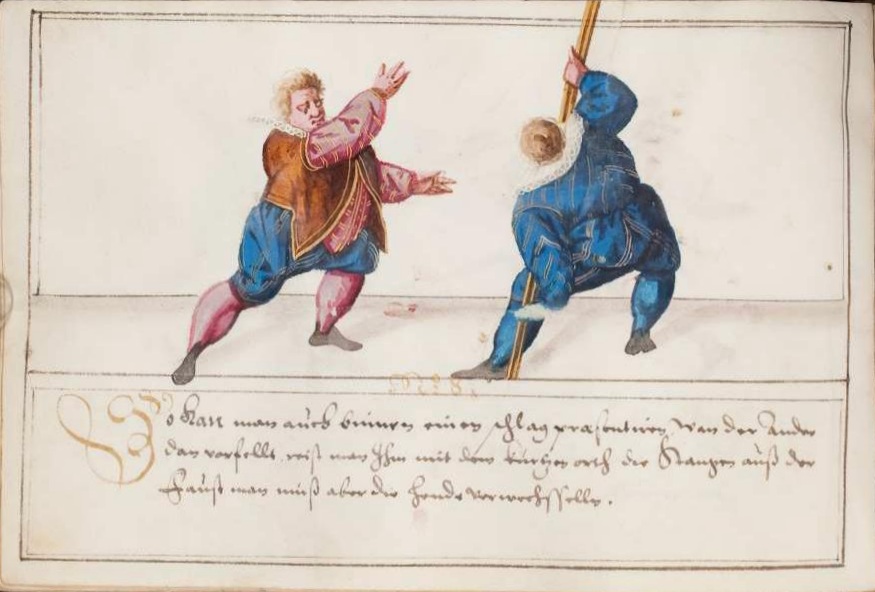 So Kan man auch binnen einen schlag praesentiren, wan der Ander
dan verfellt, reist man Ihm mit dem kurtzen orth die Stangen auß der
Faust man muß aber die hende verwechsselln.